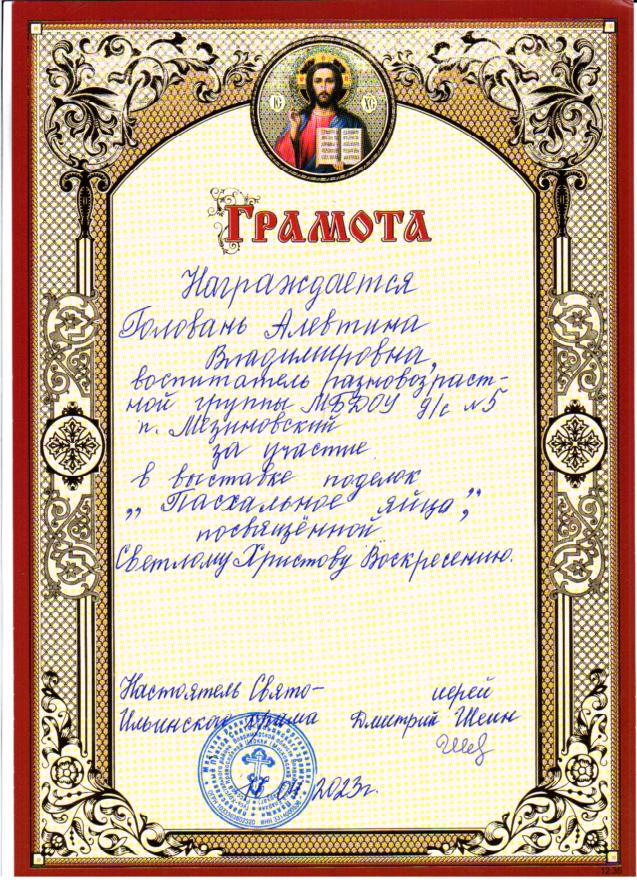 IC XC
ГРАМОТА
Награждается
Головань Алевтина
Владимировна,
воспитатель разновозраст-
ной группы МБДОУ д/с №5
п. Мезиновский
за участие
в выставке поделок
„Пасхальное яйцо”,
посвящённой
Светлому Христову Воскресению.
Настоятель Свято-
иерей
Ильинского храма
Дмитрий Шеин
04 2023г.
12.35